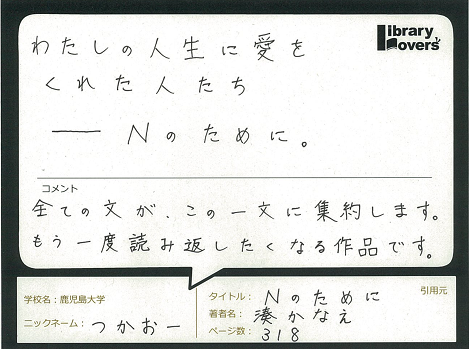 Library Lovers'
わたしの人生に愛を
くれた人たち
── Nのために。
コメント
全ての文が、この一文に集約します。
もう一度読み返したくなる作品です。
学校名：鹿児島大学
ニックネーム：つかおー
引用元
タイトル：Nのために
著者名：湊かなえ
ページ数：318